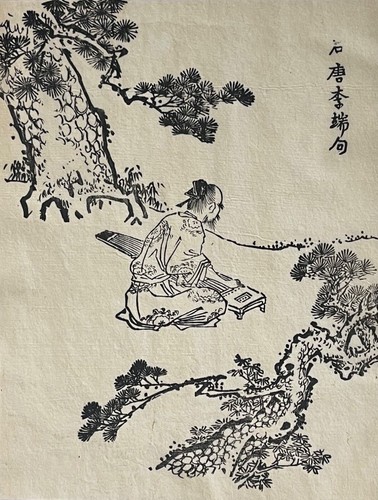 右唐李端句